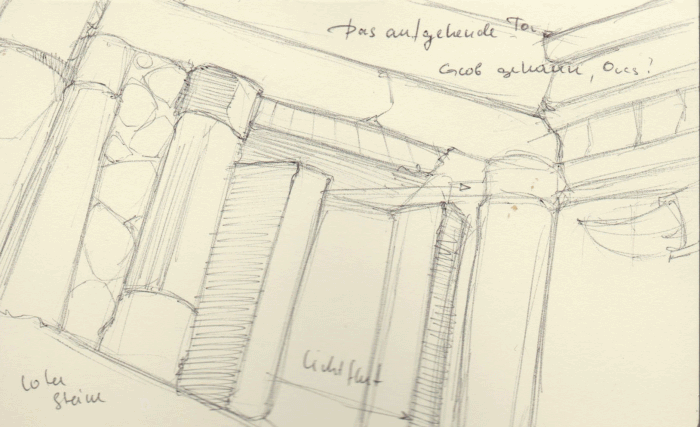 Das aufgehende Tor
Grob gehauen,
Lichtflut
roter
Stein